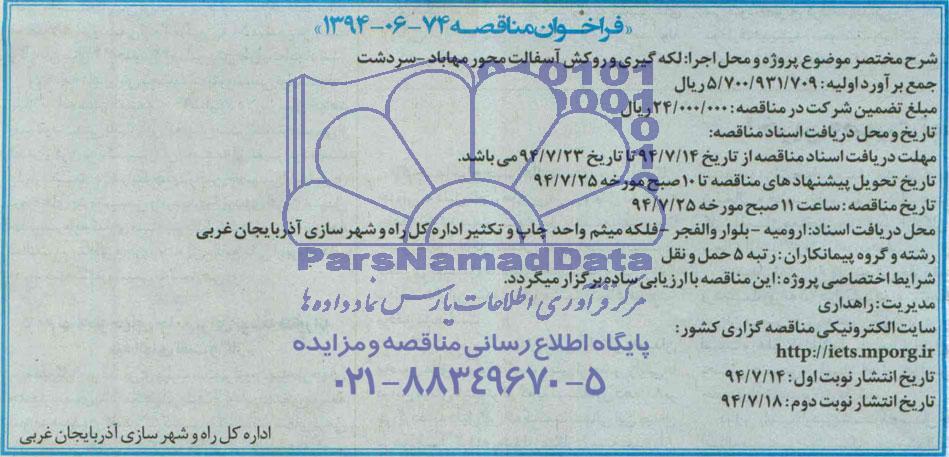 «فراخوان مناقصه ۷۴-۰۶-۱۳۹۴»
شرح مختصر موضوع پروژه و محل اجرا: لکه گیری و روکش آسفالت محور مهاباد -سردشت
جمع برآورد اولیه: ۵/۷۰۰/۹۳۱/۷۰۹ ریال
مبلغ تضمین شرکت در مناقصه: ۲۴/۰۰۰/۰۰۰ ریال
تاریخ و محل دریافت اسناد مناقصه:
مهلت دریافت اسناد مناقصه از تاریخ ۹۴/۷/۱۴ تا تاریخ ۹۴/۷/۲۳ می باشد.
تاریخ تحویل پیشنهادهای مناقصه تا ۱۰ صبح مورخه ۹۴/۷/۲۵
تاریخ مناقصه: ساعت ۱۱ صبح مورخه ۹۴/۷/۲۵
محل دریافت اسناد: ارومیه - بلوار والفجر - فلکه میثم واحد چاپ و تکثیر اداره کل راه و شهر سازی آذربایجان غربی
رشته و گروه پیمانکاران: رتبه ۵ حمل و نقل
شرایط اختصاصی پروژه: این مناقصه با ارزیابی ساده برگزار میگردد.
مدیریت: راهداری
سایت الکترونیکی مناقصه گزاری کشور:
http://iets.mporg.ir
تاریخ انتشار نوبت اول: ۹۴/۷/۱۴
تاریخ انتشار نوبت دوم: ۹۴/۷/۱۸
اداره کل راه و شهر سازی آذربایجان غربی
ParsNamadData
مرکز فرآوری اطلاعات پارس نماد داده ها
پایگاه اطلاع رسانی مناقصه و مزایده
۰۲۱-۸۸۳۴۹۶۷۰-۵